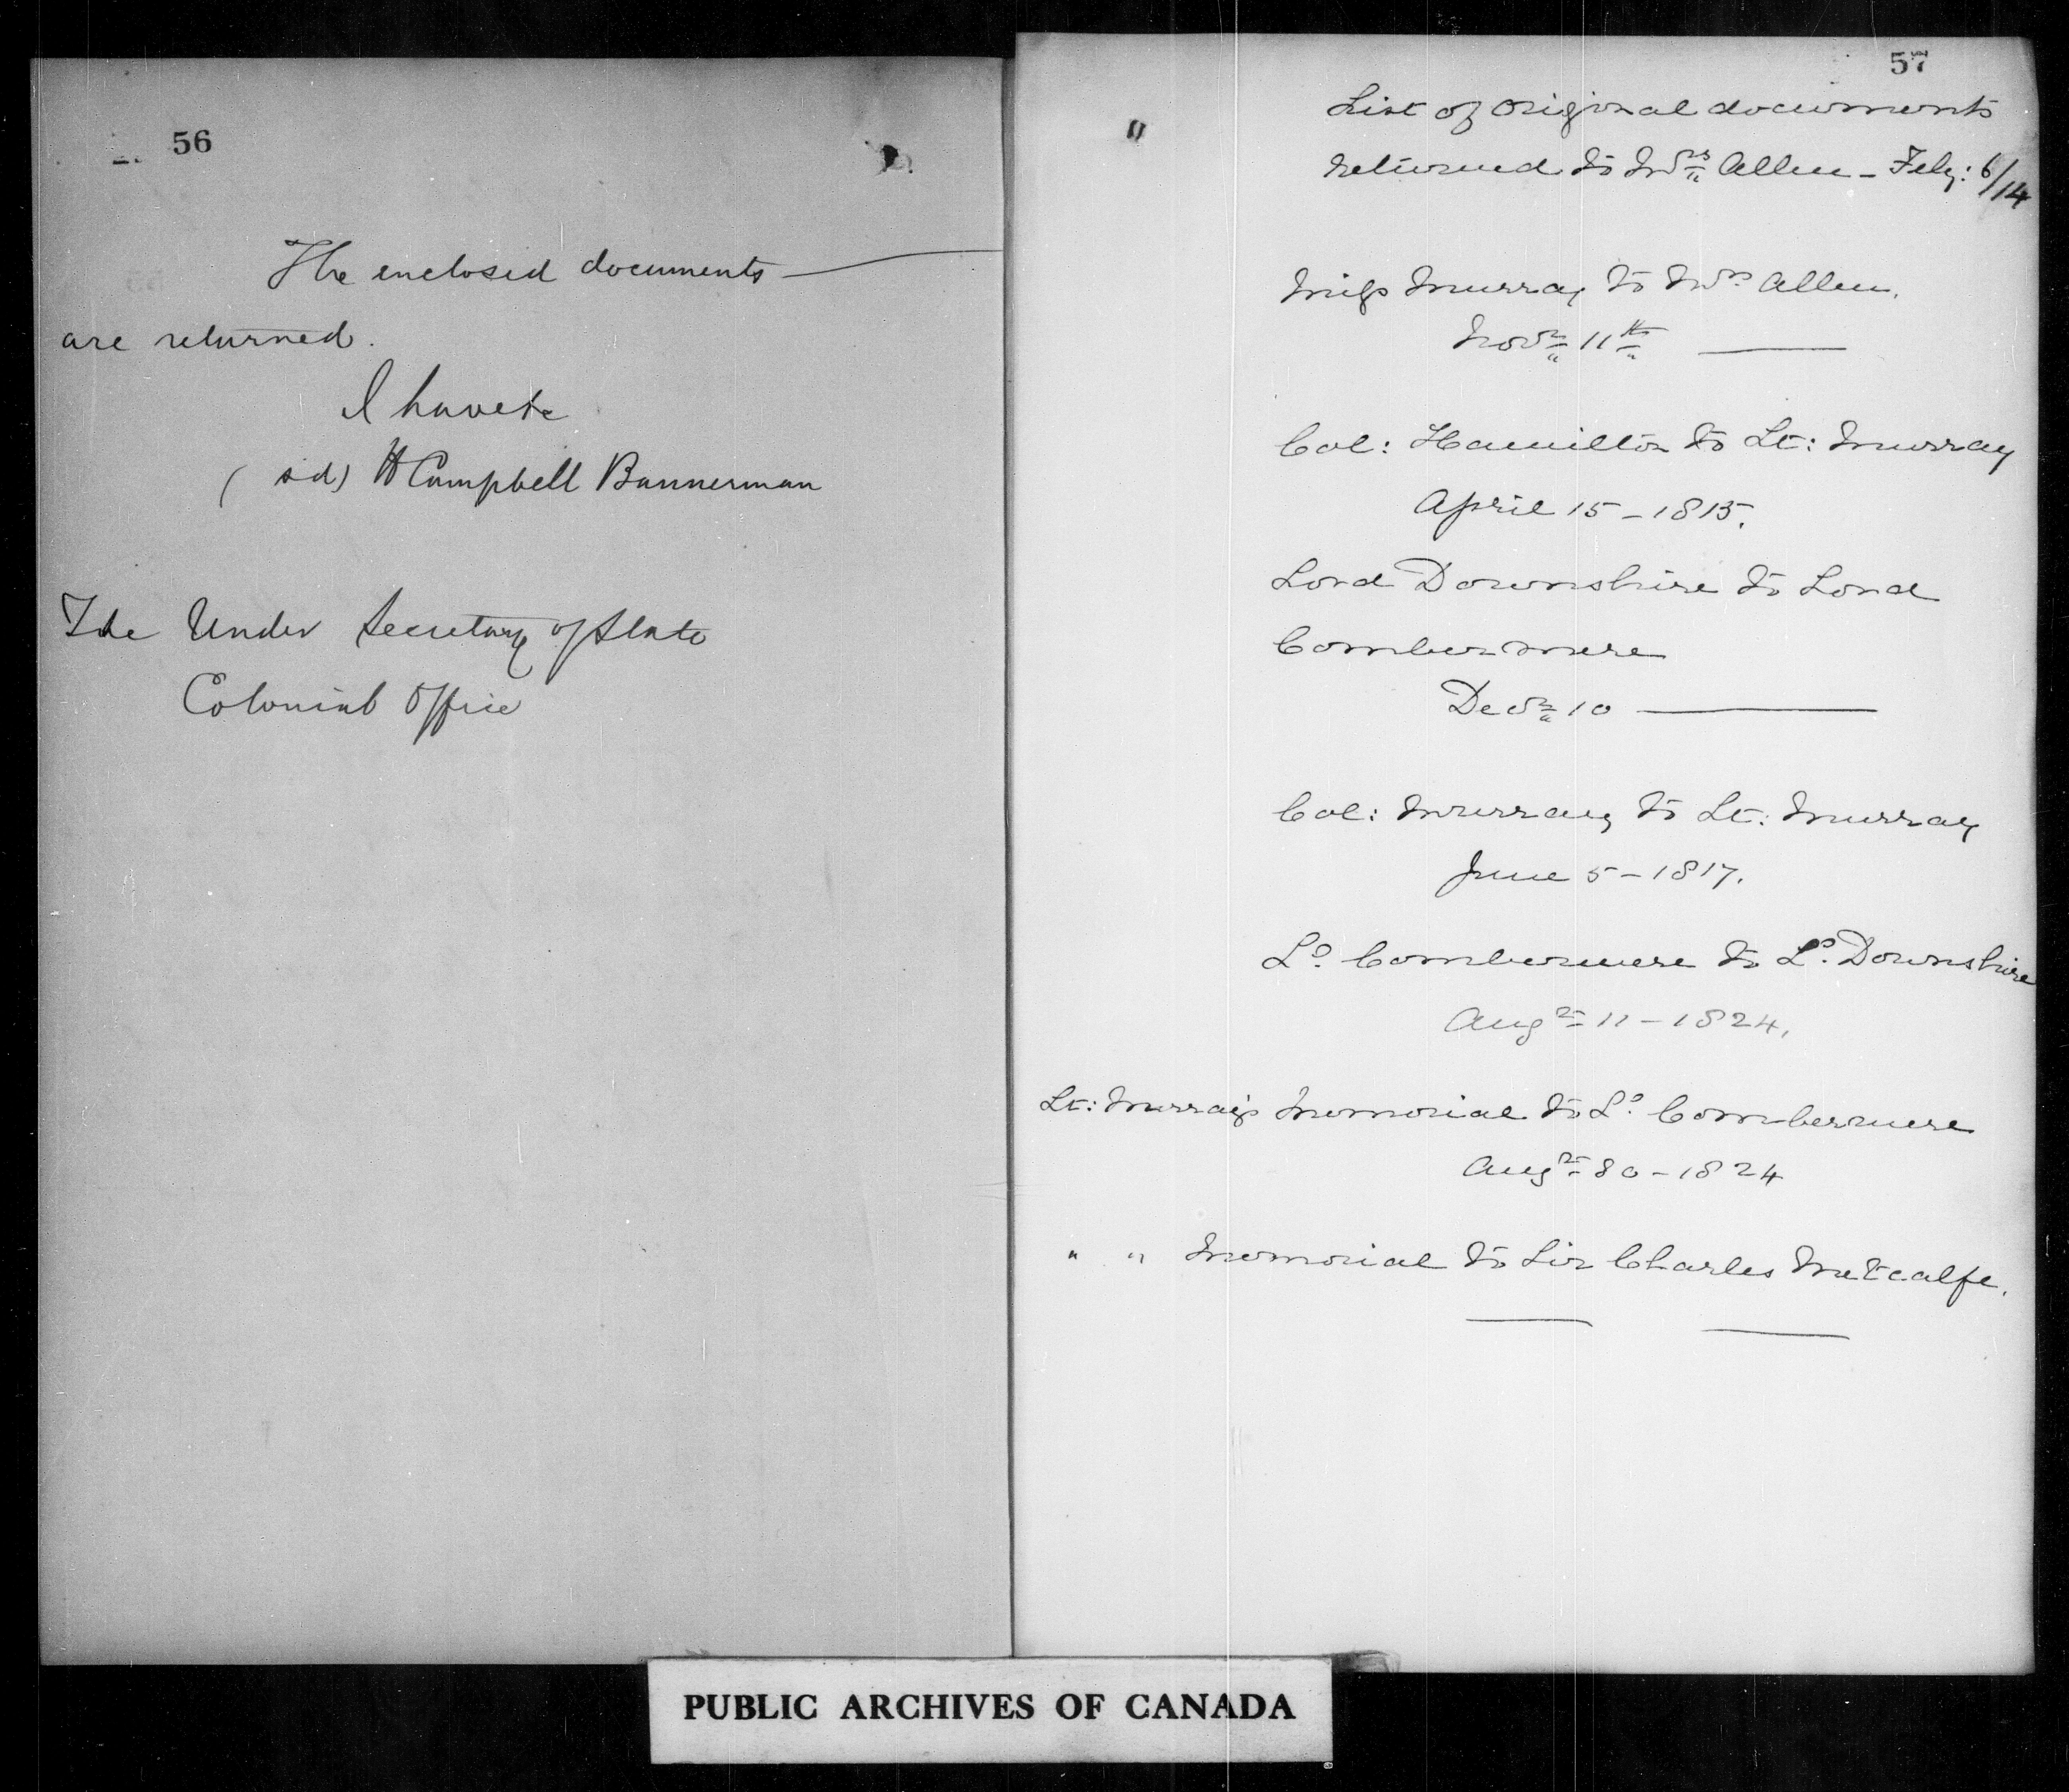 56
The enclosed documents —
are returned.
I have &c
(sd) H Campbell Bannerman
The Under Secretary of State
Colonial Office
57
List of original documents
returned to Mrs Allen - Feby: 6/14
Miss Murray to Mrs Allen.
Novr 11th —
Col: Hamilton to Lt: Murray
April 15 - 1815.
Lord Downshire to Lord
Combermere
Decr 10 —
Col: Murray to Lt: Murray
June 5 - 1817.
Ld. Combermere to Ld. Downshire
Augst 11 - 1824.
Lt: Murray's Memorial to Ld. Combermere
Augst 30 - 1824
" " Memorial to Sir Charles Metcalfe.
PUBLIC ARCHIVES OF CANADA